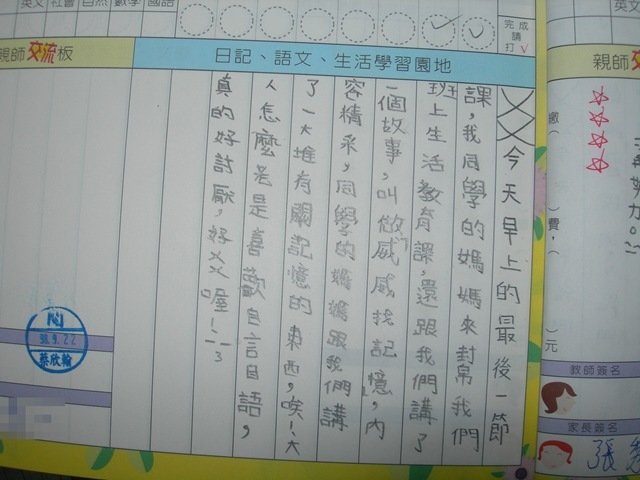 英文 社會 自然 數學 國語
完成請打√
親師交流板
日記、語文、生活學習園地
今天早上的最後一節
課,我同學的媽媽來封帛我們
班上生活教育課,還跟我們講了
一個故事,叫做威威找記憶,內
容精采,同學的媽媽跟我們講
了一大堆有關記憶的東西,唉!大
人怎麼老是喜歡自言自語,
真的好討厭,好ㄨㄨ喔!
心
98.9.22
蔡欣翰
英文
親師交
繳(
)費,(
)元
努力。
教師簽名
家長簽名
張